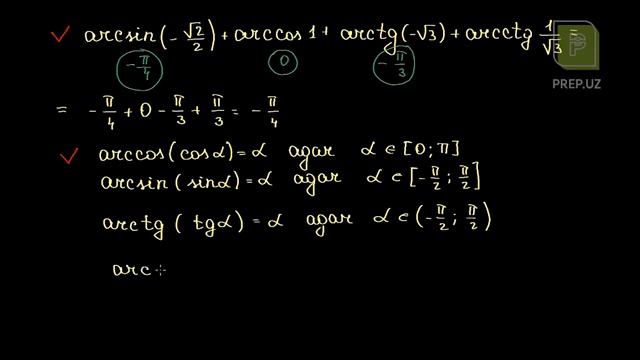 ✓ arcsin(-√2/2) + arccos 1 + arctg(-√3) + arcctg 1/√3 =
-π/4 0 -π/3
PREP.UZ
= -π/4 + 0 - π/3 + π/3 = -π/4
✓ arccos(cosα) = α agar α ∈ [0; π]
arcsin(sinα) = α agar α ∈ [-π/2; π/2]
arctg(tgα) = α agar α ∈ (-π/2; π/2)
arc